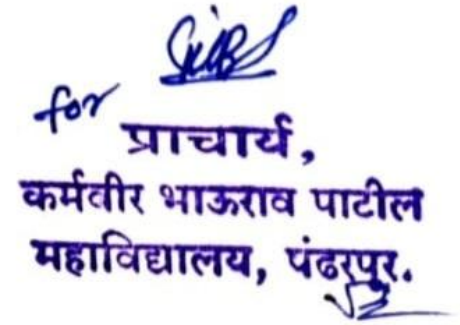 for
प्राचार्य,
कर्मवीर भाऊराव पाटील
महाविद्यालय, पंढरपुर.